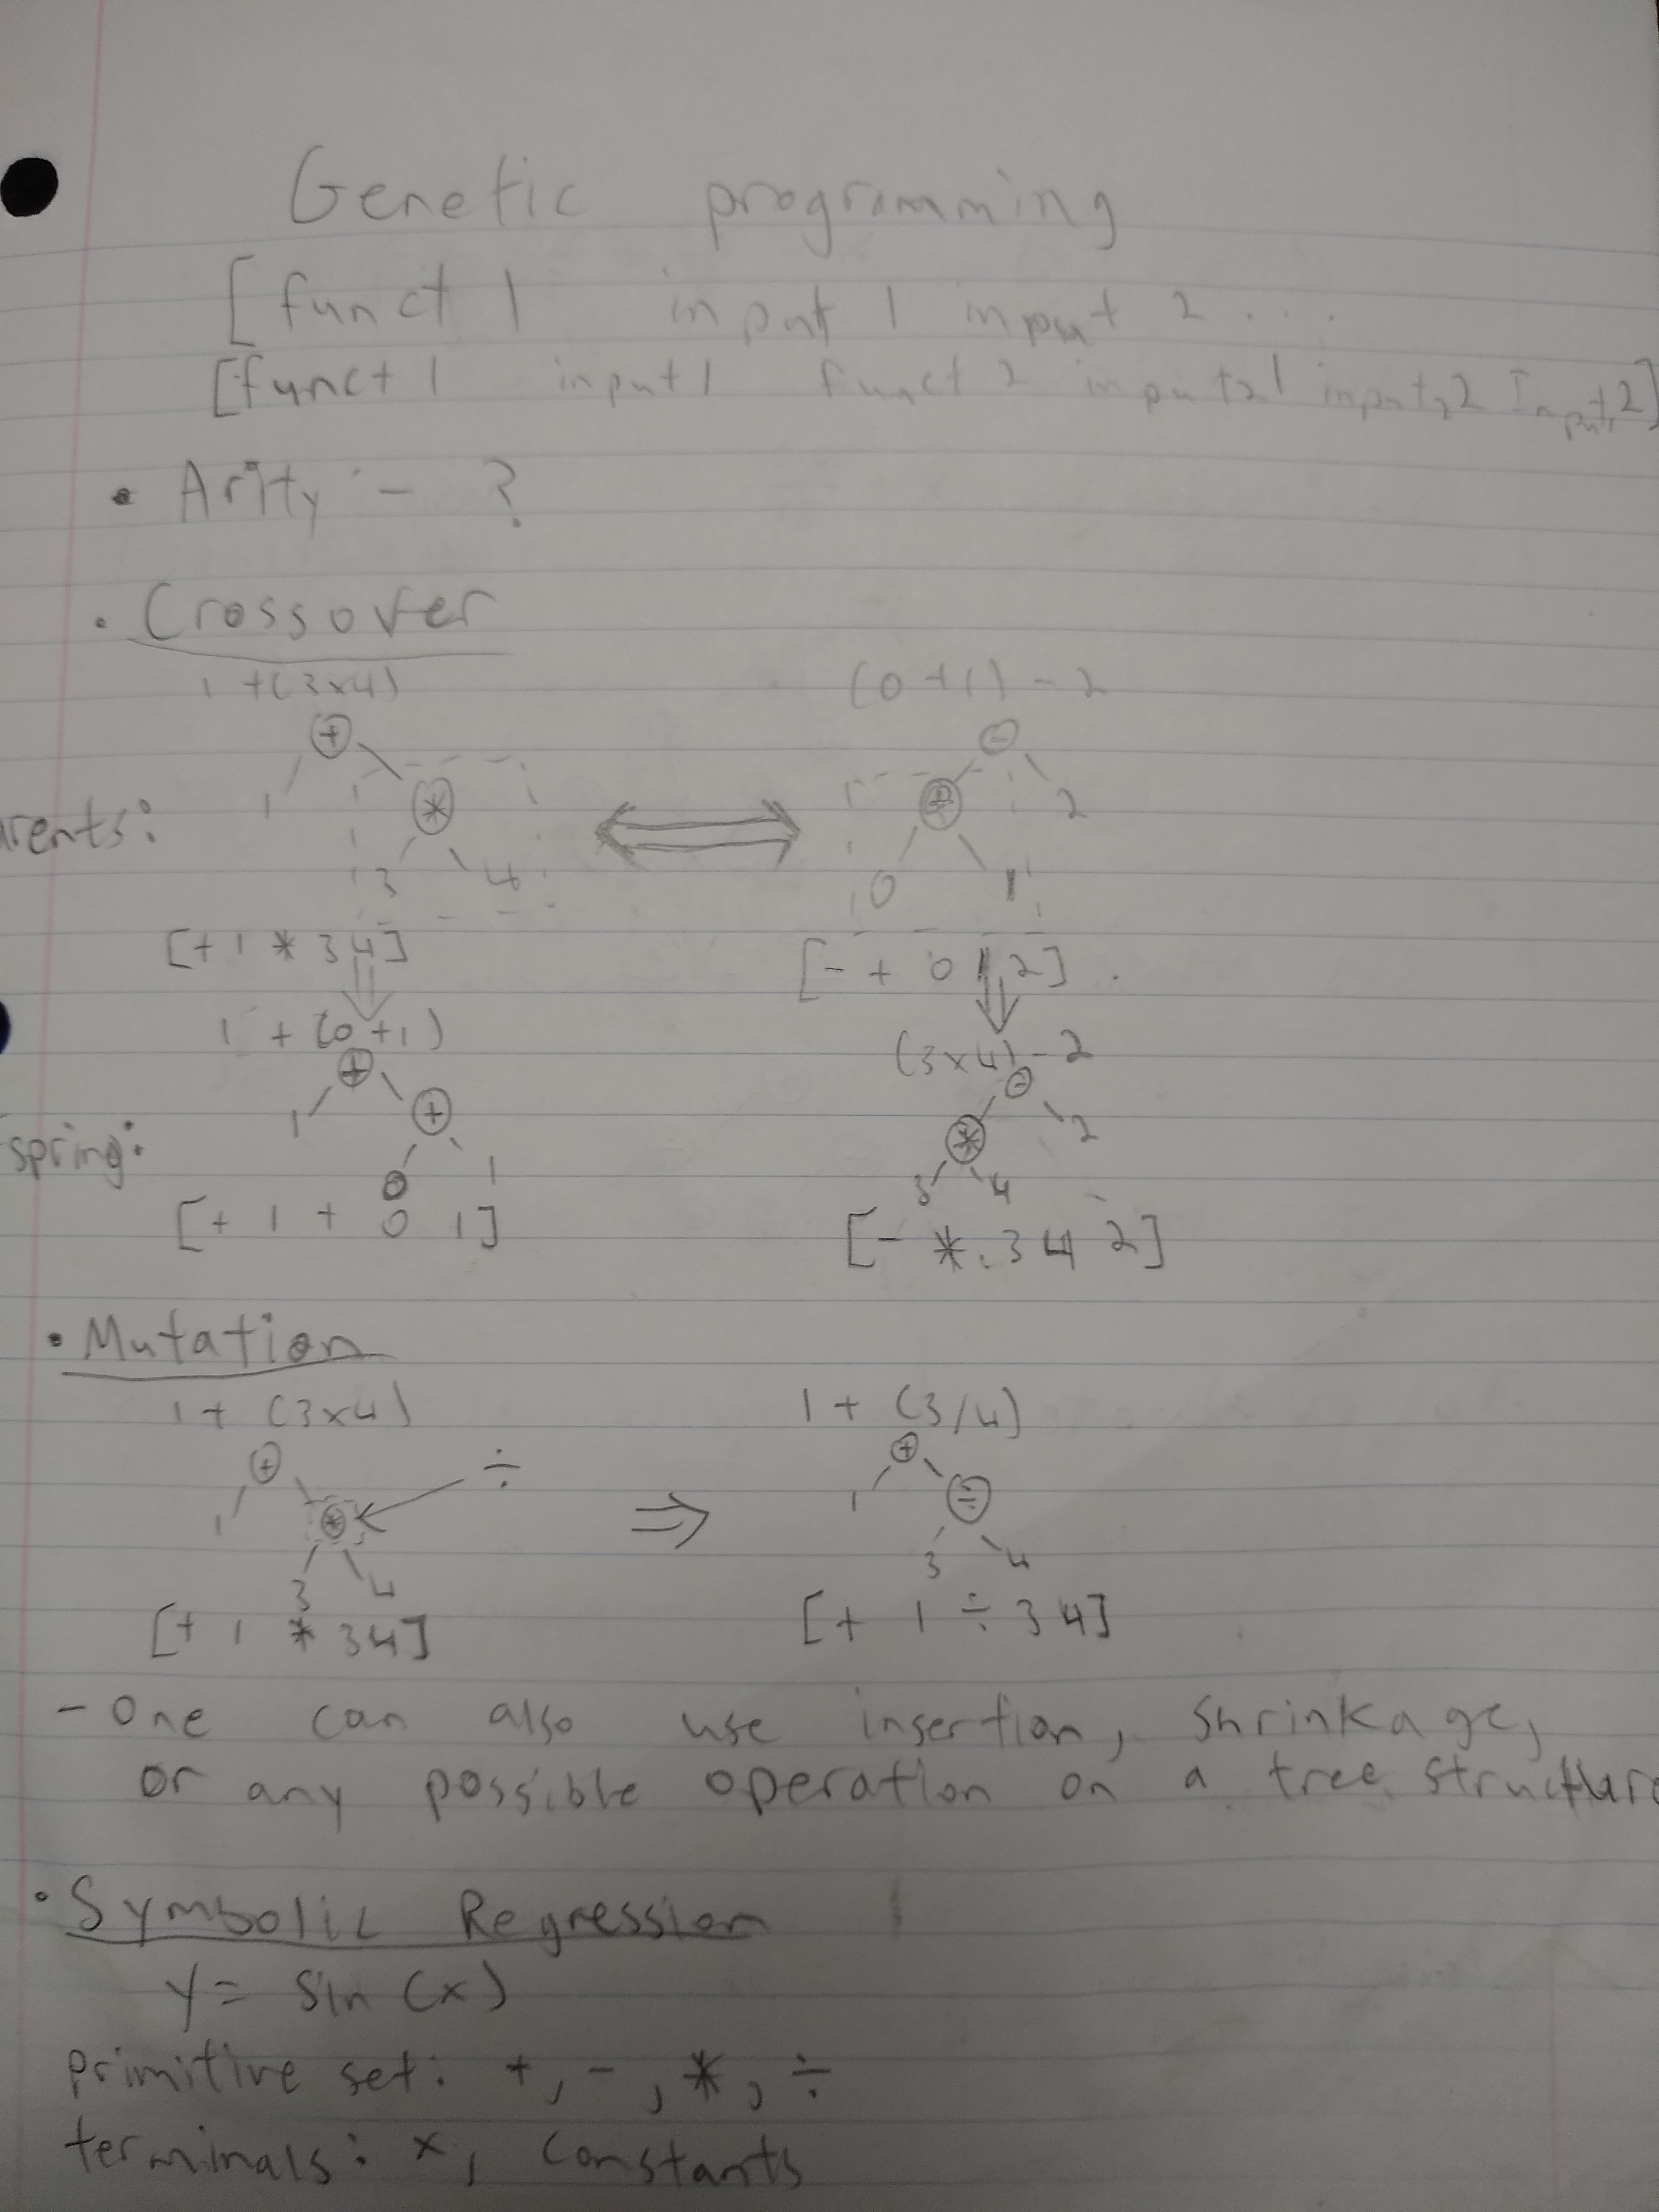 Genetic programming
[funct 1 input 1 input 2 ...
[funct 1 input 1 funct 2 input21 input22 Input2]
• Arity - ?
• Crossover
1+(3x4) (0+1)-2
+ -
1 * + 2
arents:
3 4 0 1
[+ 1 * 3 4] [- + 0 1 2]
1 + (0+1) (3x4)-2
+ -
1 + * 2
spring:
0 1 3 4
[+ 1 + 0 1] [- * 3 4 2]
• Mutation
1 + (3x4) 1 + (3/4)
+ ÷ ⇒ +
1 * 1 ÷
3 4 3 4
[+ 1 * 3 4] [+ 1 ÷ 3 4]
- One can also use insertion, shrinkage,
or any possible operation on a tree structure
• Symbolic Regression
y = sin (x)
primitive set: +, -, *, ÷
terminals: x, constants